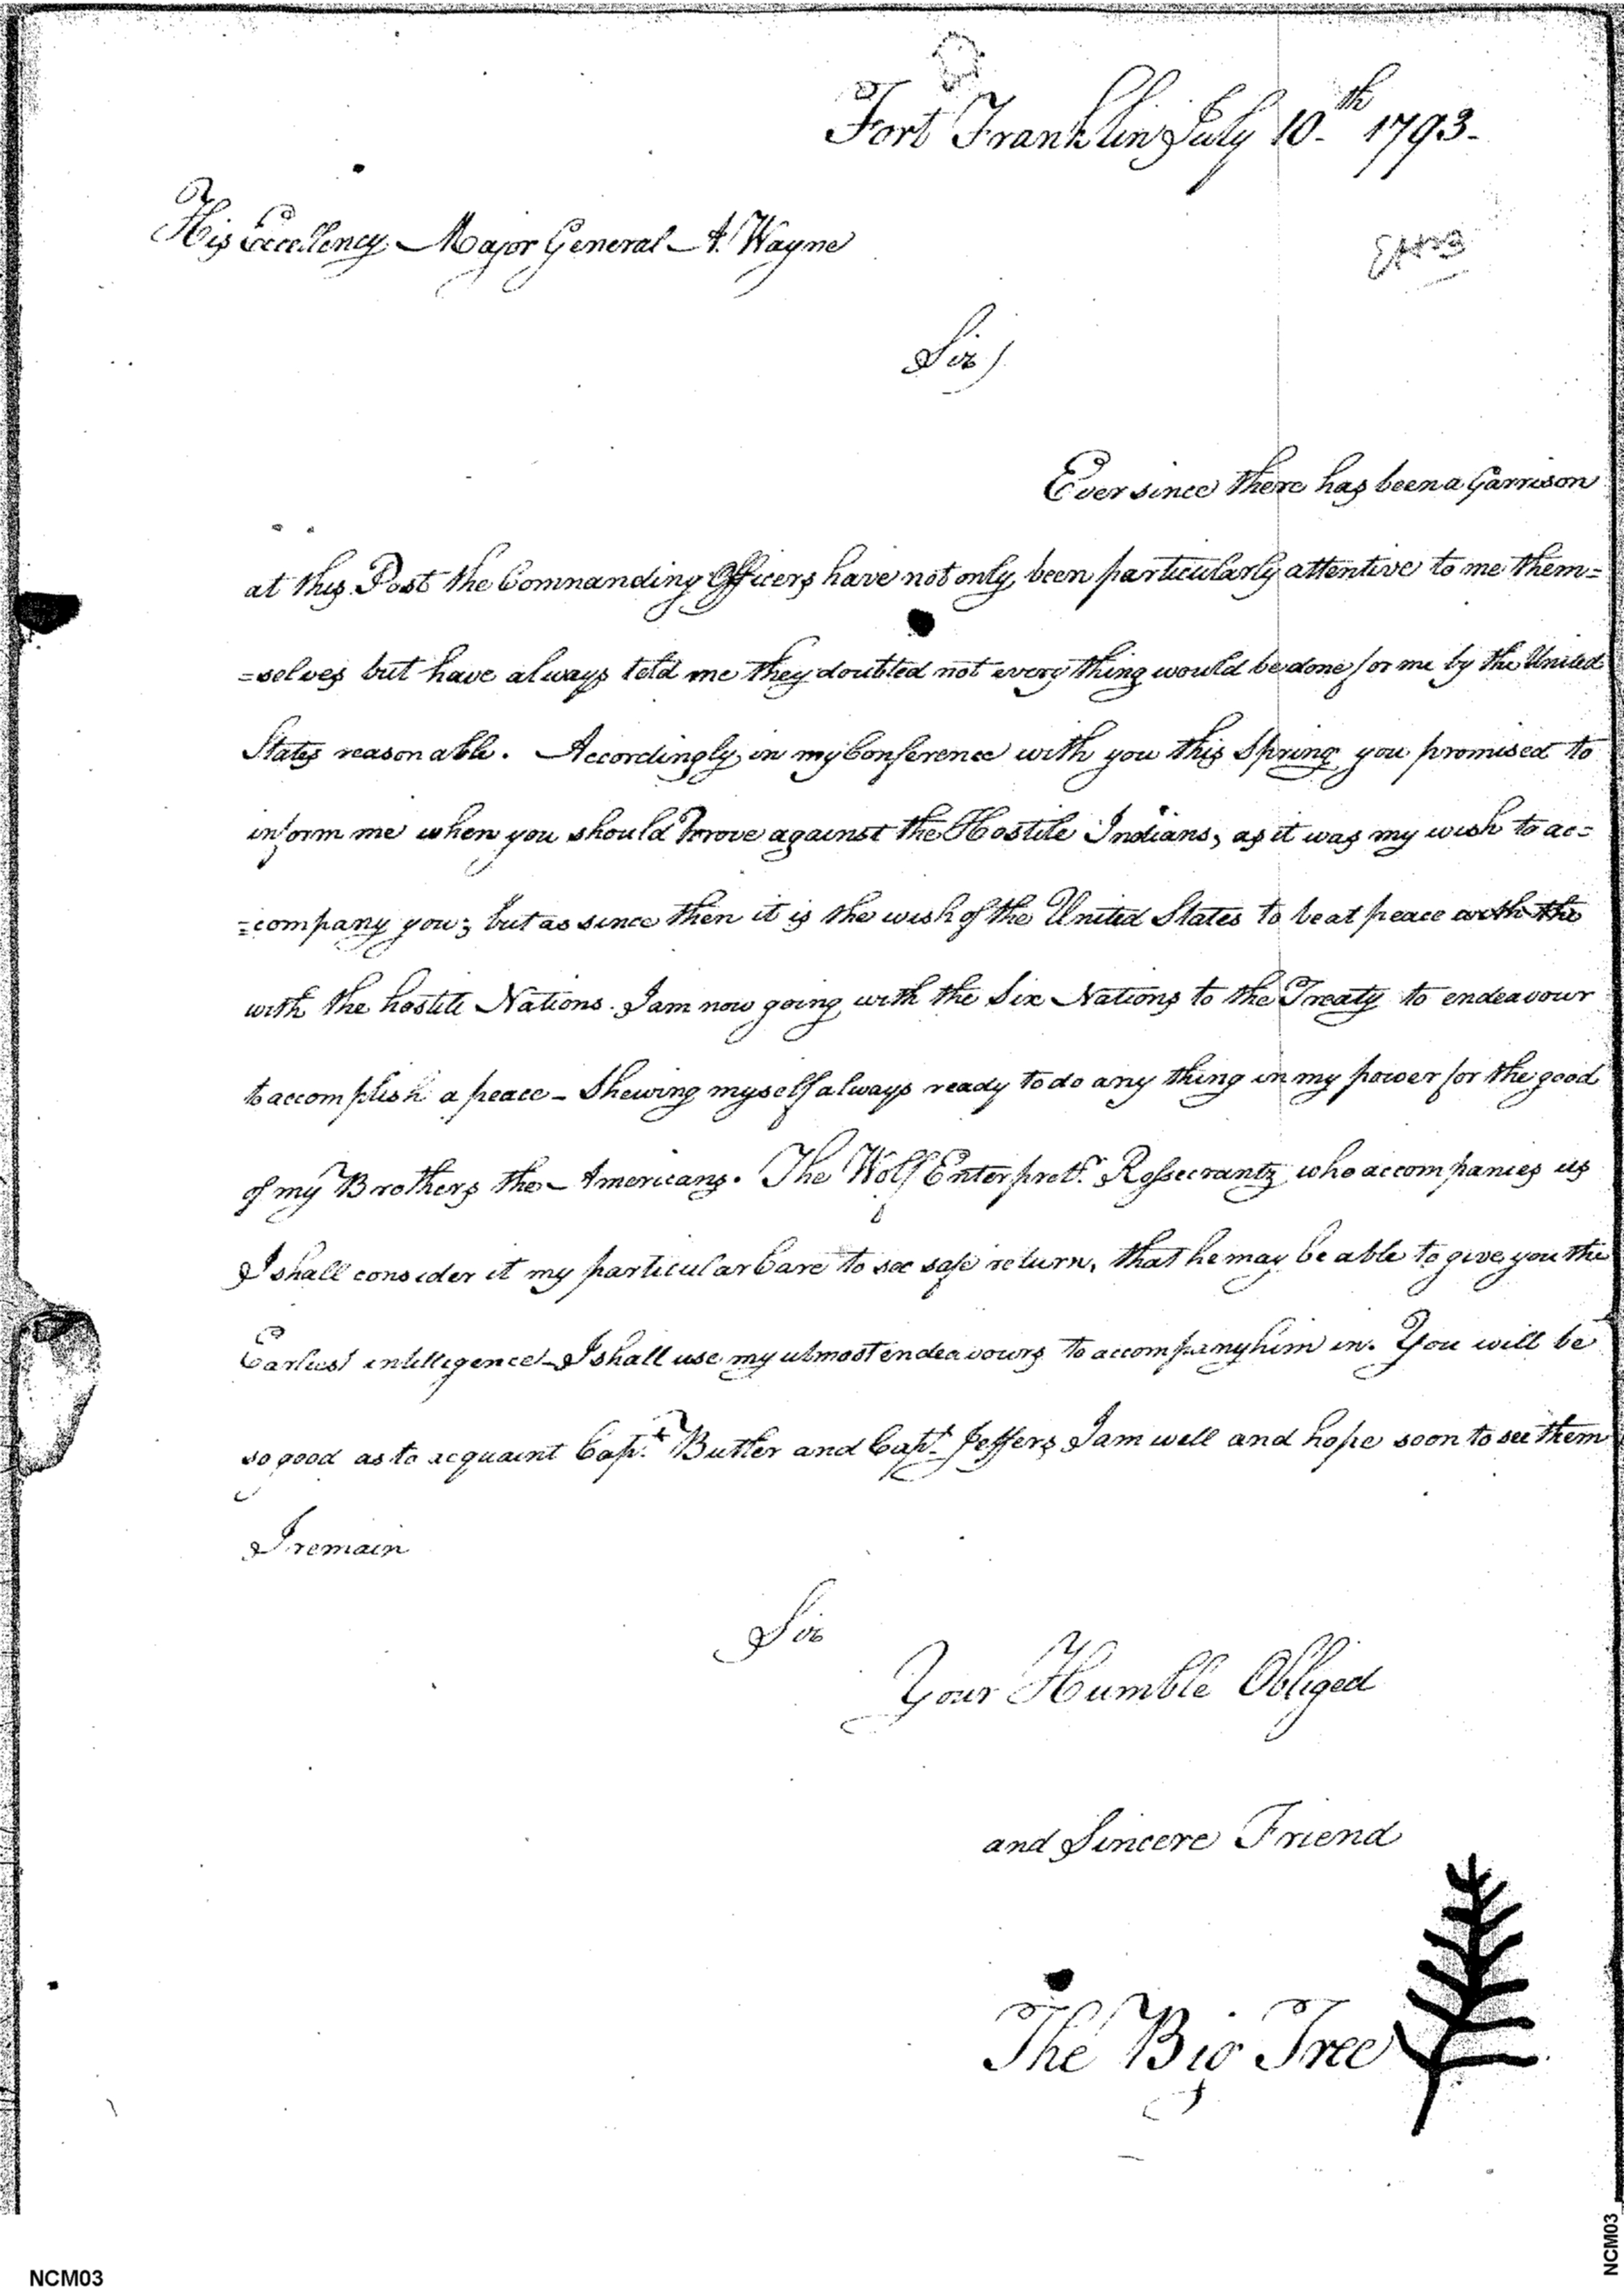 Fort Franklin July 10th 1793-
His Excellency Major General A. Wayne
Sir)
Ever since there has been a Garrison
at this Post the Commanding Officers have not only been particularly attentive to me them=
=selves but have always told me they doubted not every thing would be done for me by the United
States reasonable. Accordingly in my Conference with you this Spring you promised to
inform me when you should Move against the Hostile Indians, as it was my wish to ac=
=company you; but as since then it is the wish of the United States to be at peace with the
with the hostile Nations. I am now going with the Six Nations to the Treaty to endeavour
to accomplish a peace - Shewing myself always ready to do any thing in my power for the good
of my Brothers the Americans. The Wolf Enterpretr. Rossecrantz who accompanies us
I shall consider it my particular Care to see safe return, that he may be able to give you the
Earliest intelligence - I shall use my utmost endeavours to accompany him in. You will be
so good as to acquaint Capt. Butler and Capt. Jeffers I am well and hope soon to see them
I remain
Sir
Your Humble Obliged
and Sincere Friend
The Big Tree
NCM03
NCM03